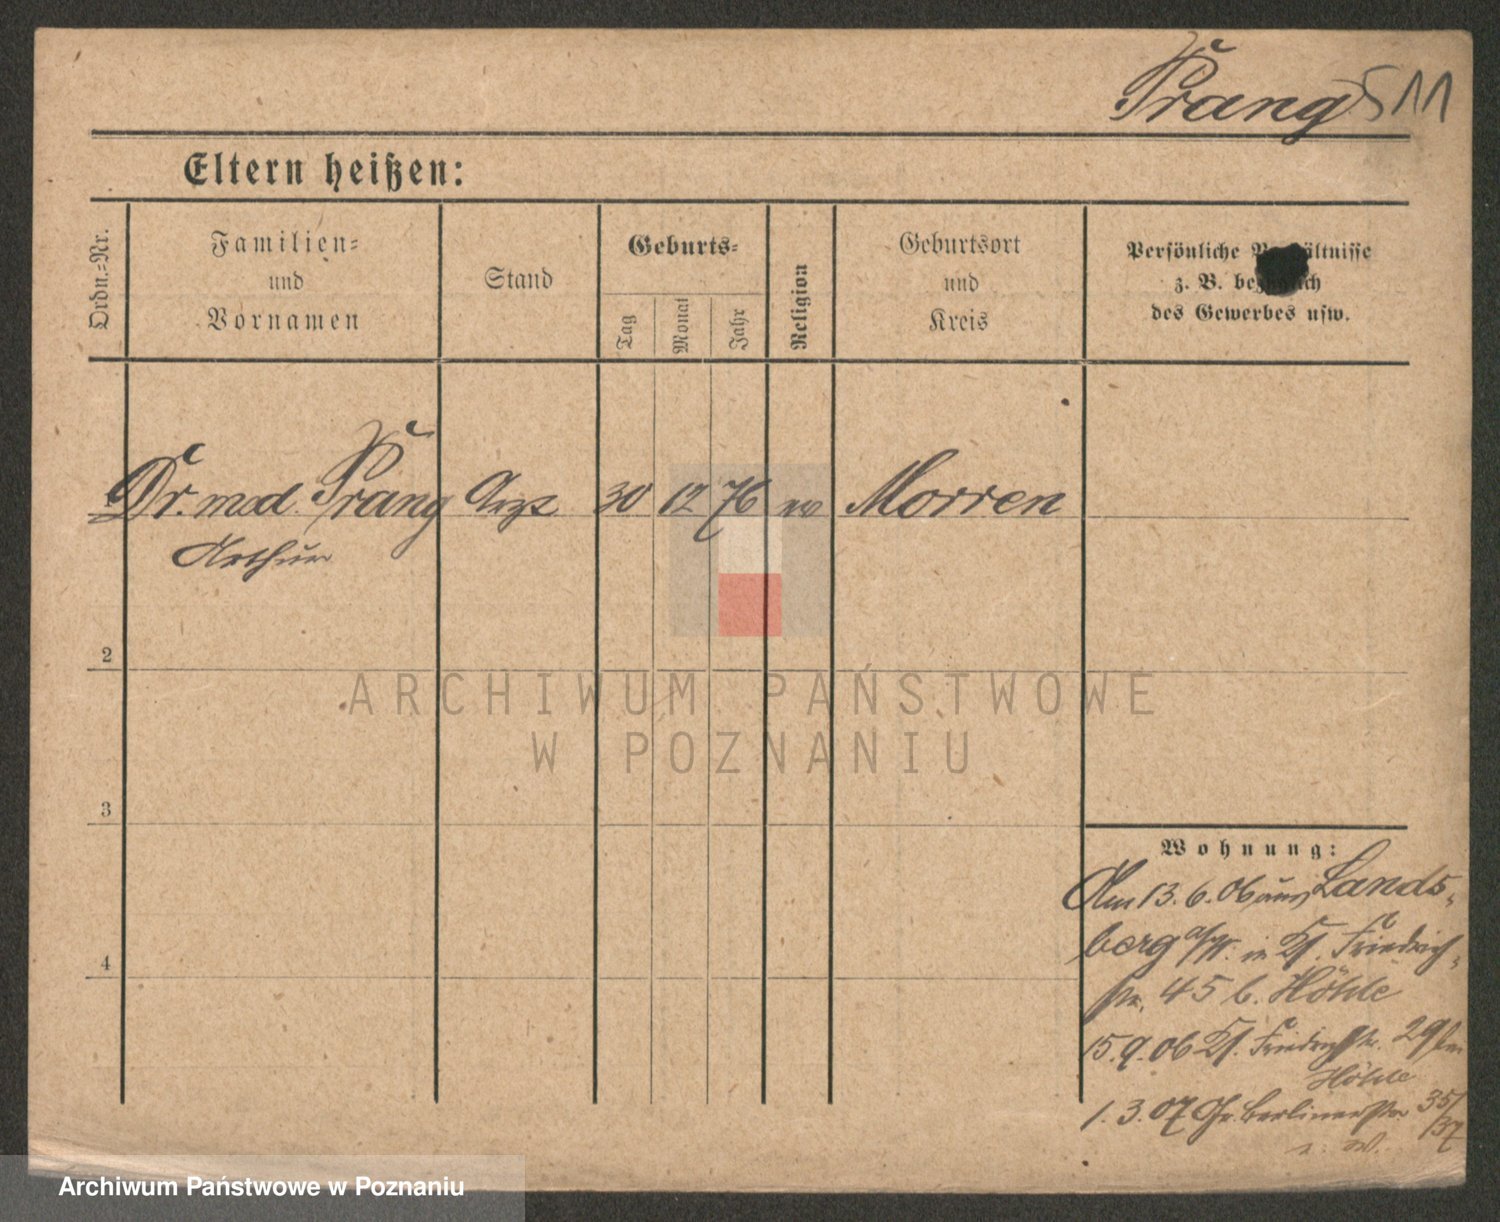 Prang 511
Eltern heißen:
Ordn.=Nr.
Familien=
und
Vornamen
Stand
Geburts=
Tag
Monat
Jahr
Religion
Geburtsort
und
Kreis
Persönliche
z. B.
des Gewerbes usw.
1 Dr. med. Prang Arzt 30 12 76 ev Morren
Arthur
2
3
4
Wohnung:
Am 13.6.06 aus Lands-
berg a/W. in Friedrich-
str. 45 b. Höhle
15.9.06 Friedrichstr. 29 bei
Höhle
1.3.07 Gr. Berlinerstr 35/
37
ARCHIWUM PAŃSTWOWE
W POZNANIU
Archiwum Państwowe w Poznaniu